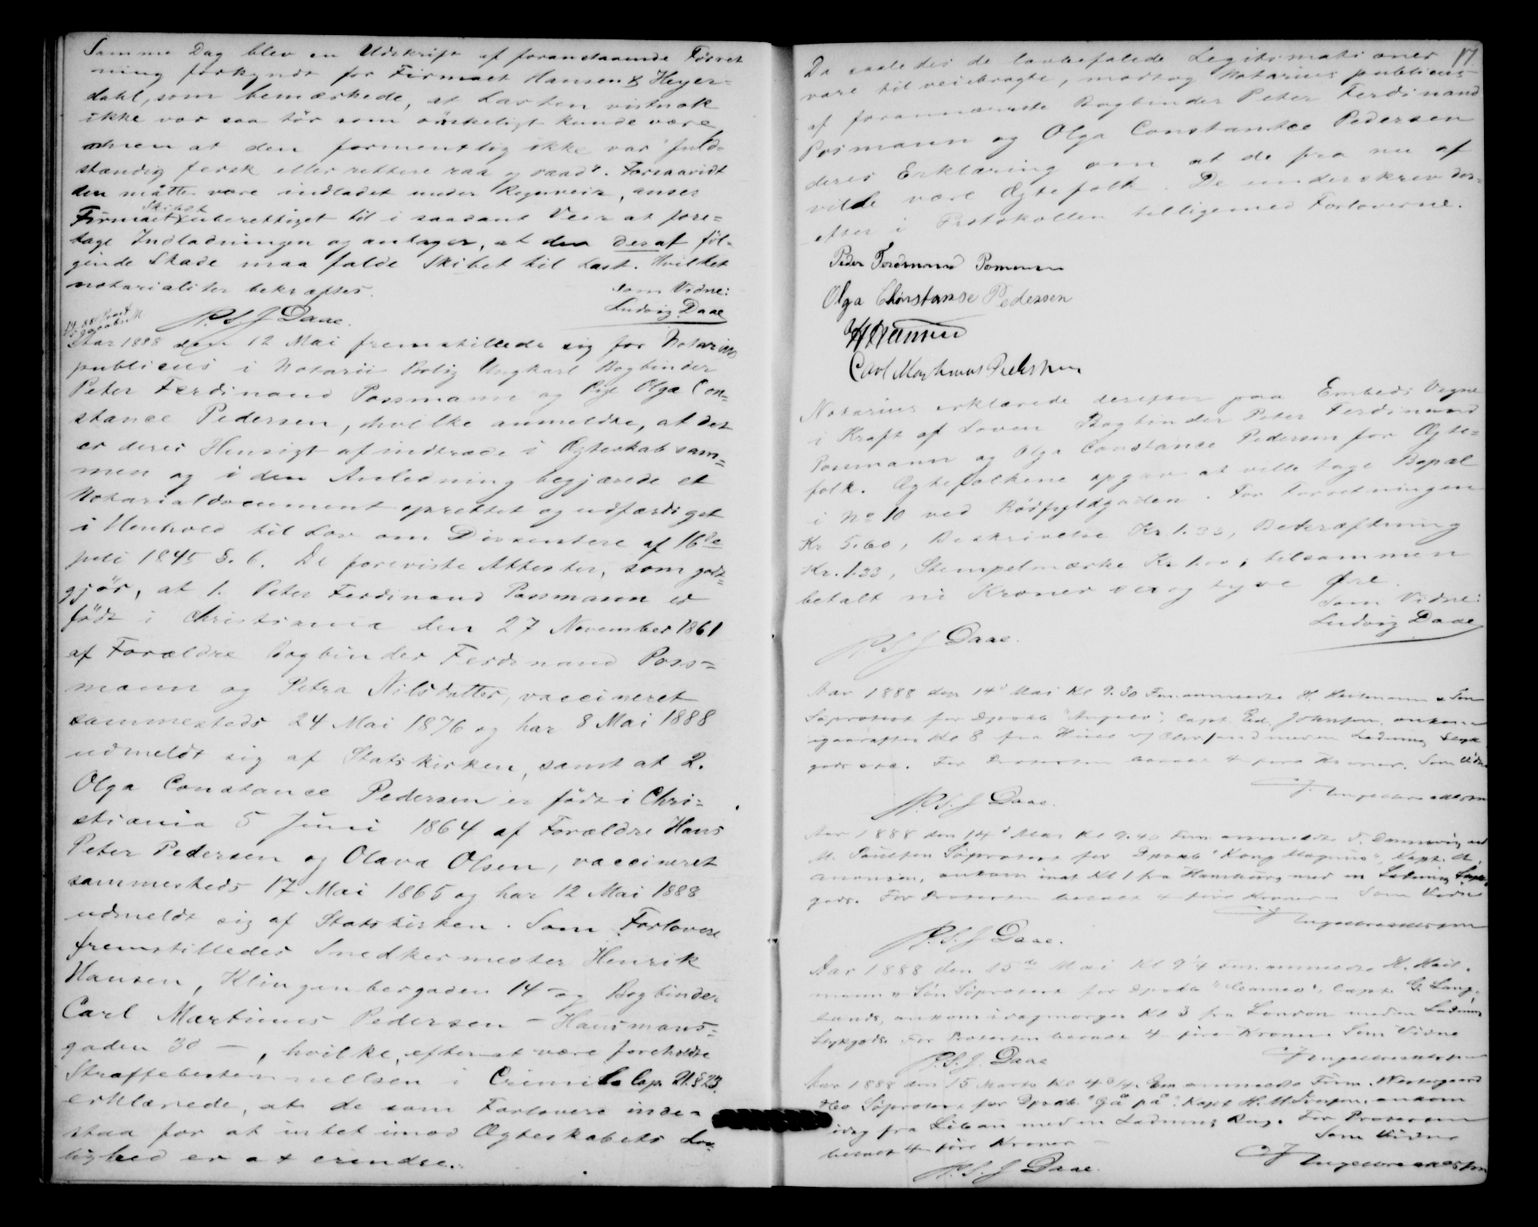 Samme Dag blev en Udskrift af foranstaaende Forret
ning forkyndt for Firmaet Hansen & Heyer=
dahl, som bemærkede, at Lasten vistnok
ikke var saa tør som ønskeligt kunde være
men at den formentlig ikke var fuld=
stændig fersk eller rettere raa og vaad. Forsaavidt
den måtte være indladet under Regnveir, anser
Firmaet Skibet uberettiget til i saadant Veir at fore=
tage Indladningen og antager, at den deraf føl=
gende Skade maa falde Skibet til Last. Hvilket
notarialiter bekræftes.
Som Vidne:
Ludvig Daae
P. S. J. Daae.
Aar 1888 den 12 Mai fremstillede sig for Notarius
publicus i Notarii Bolig Ungkarl Bogbinder
Peter Ferdinand Possmann og Pige Olga Con=
stance Pedersen, hvilke anmeldte, at det
er deres Hensigt at indtræde i Ægteskab sam=
men og i den Anledning begjærede et
Notarialdocument oprettet og udfærdiget
i Henhold til Lov om Dissentere af 16de
juli 1845 §. 6. De foreviste Attester, som godt=
gjør, at 1. Peter Ferdinand Possmann er
født i Christiania den 27 November 1861
af Forældre Bogbinder Ferdinand Poss=
mann og Petra Nilsdatter, vaccineret
sammesteds 24 Mai 1876 og har 8 Mai 1888
udmeldt sig af Statskirken, samt at 2.
Olga Constance Pedersen er født i Chri=
stiania 5 Juni 1864 af Forældre Hans
Peter Pedersen og Olava Olsen, vaccineret
sammesteds 17 Mai 1865 og har 12 Mai 1888
udmeldt sig af Statskirken. Som Forlovere
fremstilledes Snedkermester Henrik
Hansen, Klingenberggaden 14 og Bogbinder
Carl Martinus Pedersen – Hausmans=
gaden 30 –, hvilke, efter at være foreholdte
Straffebestemmelsen i Criml. Cap. 21 § 23.
erklærede, at de som Forlovere inde=
staa for at intet imod Ægteskabets Lov
lighed er at erindre.
17
Da saaledes de lovbefalede Legitimationer
vare tilveiebragte, modtog Notarius publicus
af forannævnte Bogbinder Peter Ferdinand
Posmann og Olga Constantce Pedersen
deres Erklæring om at de fra nu af
vilde være Ægtefolk. De underskrev der=
efter i Protokollen tilligemed Forloverne.
Peder Ferdinand Posmann
Olga Constanse Pedersen
H Hansen
Carl Martinus Pedersen
Notarius erklærede derefter paa Embeds Vegne
i Kraft af Loven Bogbinder Peter Ferdinand
Possmann og Olga Constance Pedersen for Ægte=
folk. Ægtefolkene opgav at ville tage Bopæl
i No 10 ved Rødfyldgaden. For Forretningen
Kr. 5.60, Beskrivelse Kr. 1.33, Bekræftning
Kr. 1.33, Stempelmærke Kr. 1.00; tilsammen
betalt ni Kroner og tyve Øre.
Som Vidne:
Ludvig Daae
P. S. J. Daae.
Aar 1888 den 14de Mai Kl 9.30 Fm. anmeldte H. Heitmann & Søn
Søprotest for Dpskb "Angelo", Capt. Ed. Johnson, ankom
igaaraftes Kl 8 fra Hull og Chrsand med en Ladning Styk
gods. For Protesten betalt 4 fire Kroner. Som Vidne
Ingebretsen
P. S. J. Daae.
Aar 1888 den 14de Mai Kl 9.40 Fm. anmeldte
Søprotest for Dpskb "Kong Magnus", Kapt.
ankom inat Kl 1 fra Hamburg med en Ladning Styk
gods. For Protesten betalt 4 fire Kroner Som Vidne
Ingebretsen
P. S. J. Daae.
Aar 1888 den 15de Mai Kl 9¼ Fm. anmeldte H. Heit=
mann & Søn Søprotest for Dpskb "Cameo", Capt. G. Lang=
lands, ankom idagmorges Kl 3 fra London med en Ladning
Stykgods. For Protesten betalt 4 fire Kroner Som Vidne
Ingebretsen
P. S. J. Daae
Aar 1888 den 15 Marts Kl 4¾ Em anmeldte Firm.
Søprotest for Dpskb "Gå på", Kapt H. M. ankom
idag fra Libau med en Ladning Rug. For Protesten
betalt 4 fire Kroner –
Som Vidne
Ingebretsen
P. S. J. Daae.